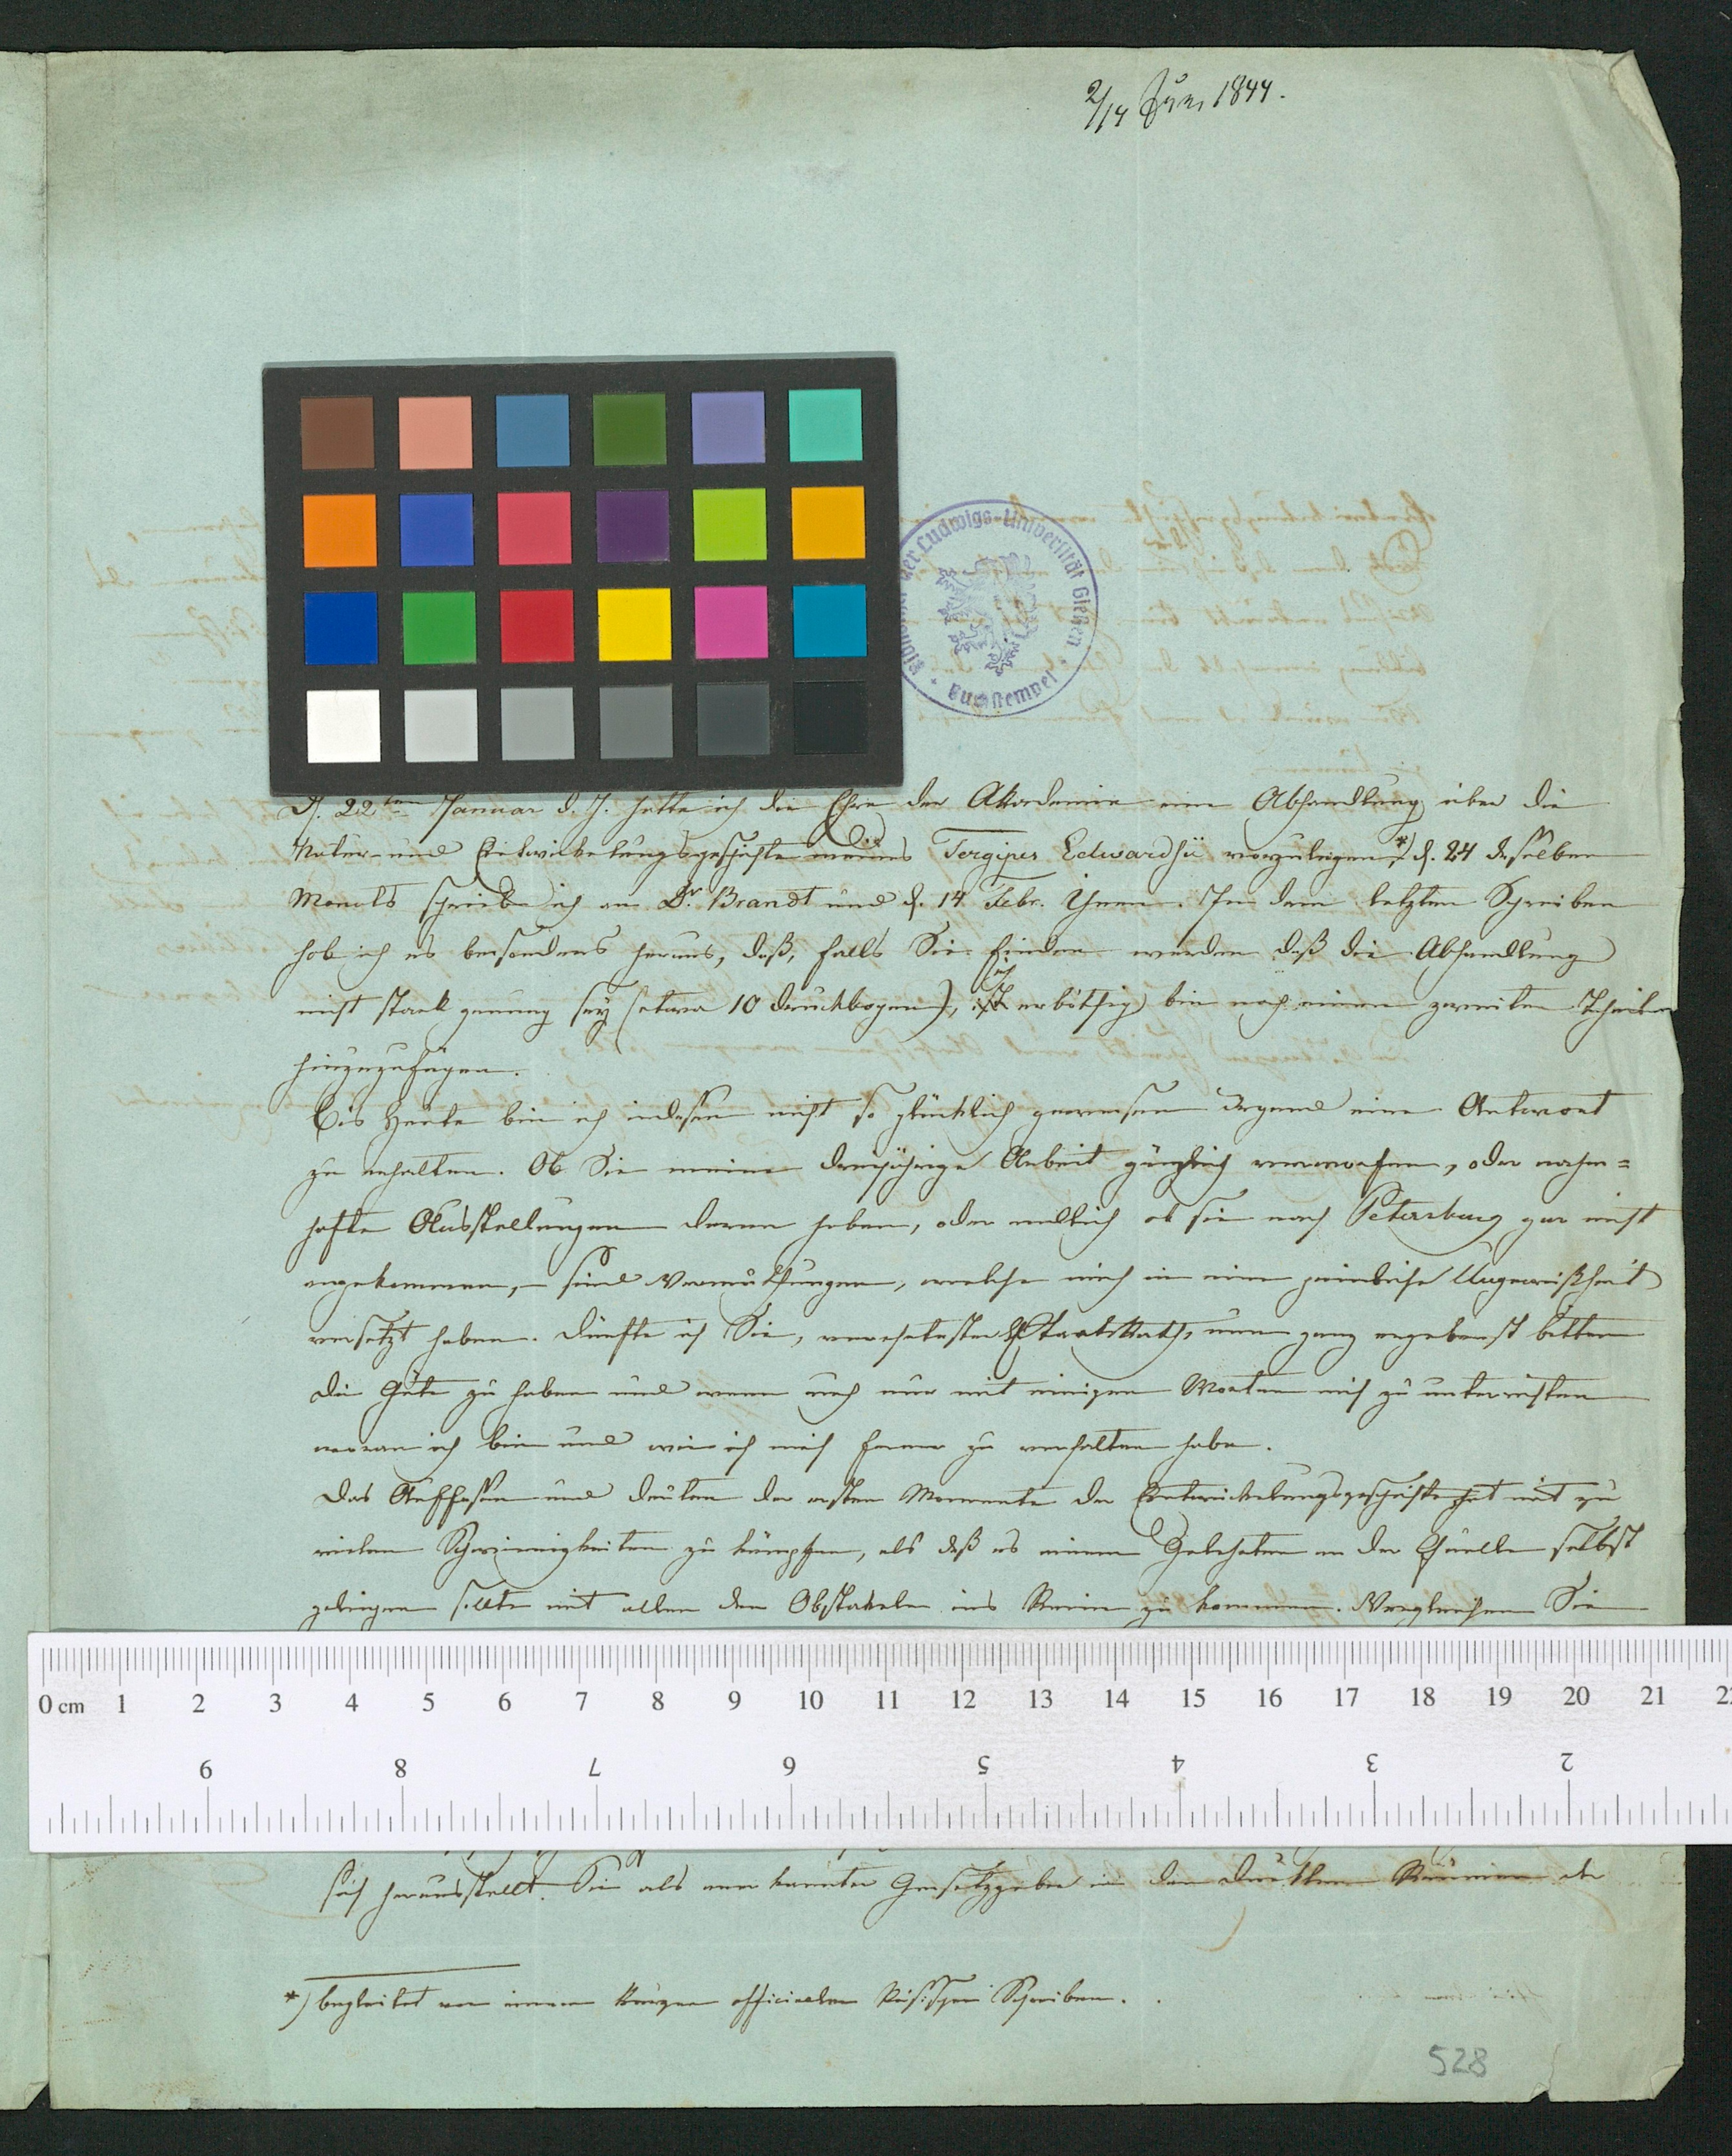 2/14 Juni 1844.
der Ludwigs-Universität Gießen
D. 22ten Januar d. J. hatte ich die Ehre der Akademie eine Abhandlung über die
Natur- und Entwickelungsgeschichte meines Tergipes Edwardsii vorzulegen*, d. 24 desselben
Monats schrieb ich an Dr. Brandt und d. 14 Febr. Ihnen. In dem letzten Schreiben
hob ich es besonders heraus, daß, falls Sie finden werden daß die Abhandlung
nicht stark genung sey (etwa 10 Druckbogen), ich erböthig bin noch einen zweiten
hinzuzufügen.
Bis Heute bin ich indessen nicht so glücklich gewesen irgend eine Antwort
zu erhalten. Ob Sie meine dreijährige Arbeit gänzlich verworfen, oder nahm=
hafte Ausstellungen daran haben, oder endlich ob sie nach Petersburg gar nicht
angekommen, – sind Vermuthungen, welche mich in eine peinliche Ungewißheit
versetzt haben. Dürfte ich Sie, verehrtester H Staatsrath, nun ganz ergebenst bitten
die Güte zu haben und wenn auch nur mit einigen Worten mich zu unterrichten
woran ich bin und wie ich mich ferner zu verhalten habe.
Das Auffassen und Deuten der ersten Momente der Entwickelungsgeschichte hat mit zu
vielen Schwierigkeiten zu kämpfen, als daß es einem Gelehrten an der Quelle selbst
gelingen sollte mit allen den Obstakeln ins Reine zu kommen. Vergleichen Sie
0 cm 1 2 3 4 5 6 7 8 9 10 11 12 13 14 15 16 17 18 19 20 21
9 8 7 6 5 4 3 2
sich herausstellt. Sie als anerkannter Gesetzgeber in den dunklen Räumen der
*) begleitet von einem kurzen officiellen Russischen Schreiben.
528